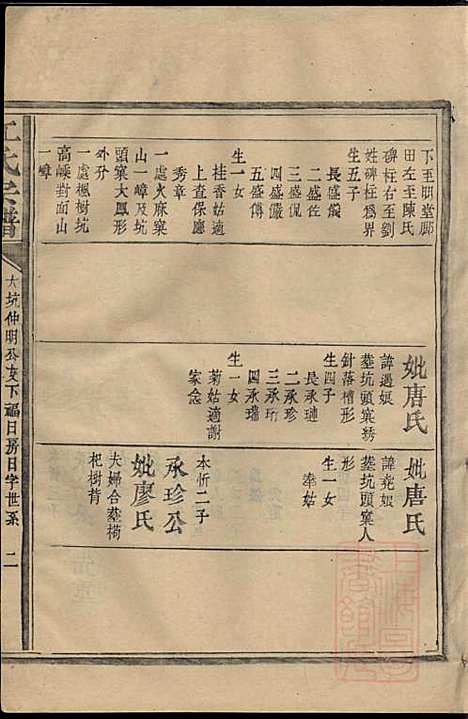 下至明堂鄜
田左至陳氏
碑柱右至劉
姓碑柱爲界
生五子
長盛儼
二盛佐
三盛侃
四盛儼
五盛傅
生一女
桂香姑適
上查保廳
秀章
一處火麻窠
山一嶂及坑
頭窠大鳳形
外升
一處楓樹坑
高嵊對面山
一嶂
妣唐氏
諱過娘
墓坑頭窠綉
針落檀形
生四子
長承璉
二承珍
三承珩
四承瑞
生一女
菊姑適謝
家念
妣唐氏
諱堯娘
墓坑頭窠人
形
生一女
奉姑
本忻二子
承珍公
妣廖氏
夫婦合墓椅
杞樹背
江氏宗譜
大坑仲明公支下福日房日字世系
二